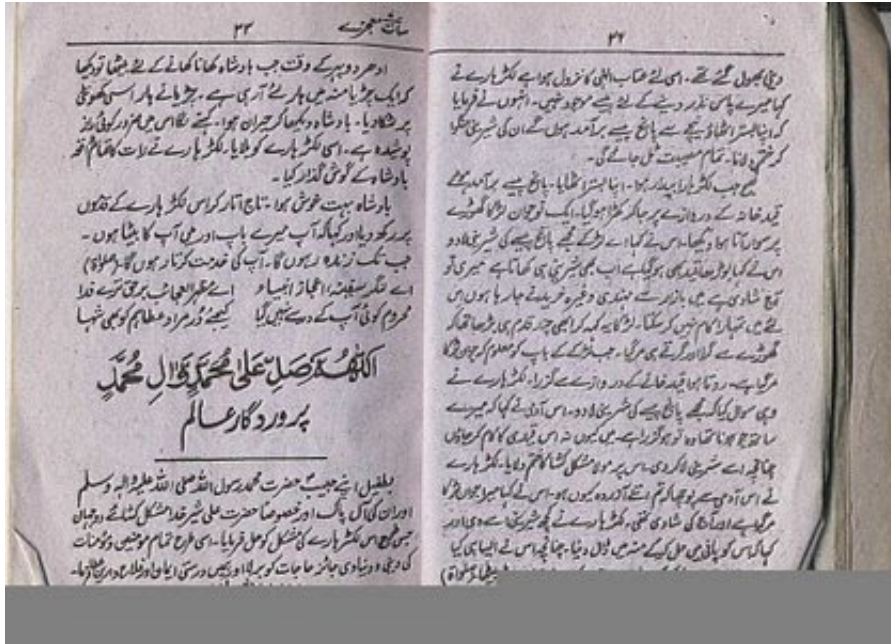 ۳۲
دینی بھول گئے تھے۔ اسی لئے عتاب الٰہی کا نزول ہوا ہے لکڑہارے نے
کہا میرے پاس نذر دینے کے لئے پیسے موجود نہیں۔ انہوں نے فرمایا
کہ اپنا بستر اٹھاؤ نیچے سے پانچ پیسے برآمد ہوں گے ان کی شیرینی منگوا
کر ختم دلانا۔ تمام مصیبت ٹل جائے گی۔
صبح جب لکڑہارا بیدار ہوا۔ اپنا بستر اٹھایا۔ پانچ پیسے برآمد ہوئے
قید خانہ کے دروازے پر جا کر کھڑا ہو گیا۔ ایک نوجوان لڑکا گھوڑے
پر سوار آتا ہوا دیکھا۔ اس نے کہا اے لڑکے مجھے پانچ پیسے کی شیرینی لا دو
اس نے کہا بوڑھا قید بھی ہو گیا ہے اب بھی شیرینی ہی کھاتا ہے میری تو
آج شادی ہے میں بازار سے مہندی وغیرہ خریدنے جا رہا ہوں اس
لئے میں تمہارا کام نہیں کر سکتا۔ لڑکا یہ کہہ کر ابھی چند قدم ہی بڑھا تھا کہ
گھوڑے سے گرا اور گرتے ہی مر گیا۔ جب لڑکے کے باپ کو معلوم کہ جوان لڑکا
مر گیا ہے۔ روتا ہوا قید خانے کے دروازے سے گزرا۔ لکڑہارے نے
وہی سوال کیا کہ مجھے پانچ پیسے کی شیرینی لا دو۔ اس آدمی نے کہا کہ میرے
ساتھ جو ہونا تھا وہ تو ہو گزرا ہے۔ میں کیوں نہ اس قیدی کا کام کر جاؤں
چنانچہ اسے شیرینی لا کر دی۔ اس پر مولا مشکل کشا کا ختم دلایا۔ لکڑہارے
نے اس آدمی سے پوچھا کہ تم اتنے آزردہ کیوں ہو۔ اس نے کہا میرا جوان لڑکا
مر گیا ہے اور آج کی شادی تھی۔ لکڑہارے نے کچھ شیرینی اسے دی اور
کہا کہ اس کو پانی میں حل کر کے منہ میں ڈال دینا۔ چنانچہ اس نے ایسا ہی کیا
بیٹھا۔ (صلوٰۃ)
۳۳ معجزے
ادھر دوپہر کے وقت جب بادشاہ کھانا کھانے کے لئے بیٹھا تو دیکھا
کہ ایک چڑیا منہ میں ہار لئے آ رہی ہے۔ چڑیا نے ہار اسی کھونٹی
پر لٹکا دیا۔ بادشاہ دیکھ کر حیران ہوا۔ کہنے لگا اس میں ضرور کوئی راز
پوشیدہ ہے۔ اسی لکڑہارے کو بلایا۔ لکڑہارے نے رات کا تمام قصہ
بادشاہ کے گوش گذار کیا۔
بادشاہ بہت خوش ہوا۔ تاج اتار کر اس لکڑہارے کے قدموں
پر رکھ دیا اور کہا کہ آپ میرے باپ اور میں آپ کا بیٹا ہوں۔
جب تک زندہ رہوں گا۔ آپ کی خدمت کرتا رہوں گا۔ (صلوٰۃ)
اے لنگر سفینہ، اعجاز انبیاء اے مظہر العجائب برحق ترے فدا
محروم کوئی آپ کے در سے نہیں گیا کیجئے در مراد عطا ہم کو بھی شہا
اللّٰھُمَّ صَلِّ عَلیٰ مُحَمَّدٍ وَّ اٰلِ مُحَمَّدٍ
پروردگار عالم
بطفیل اپنے حبیب حضرت محمد رسول اللہ صلی اللہ علیہ وآلہ وسلم
اور ان کی آل پاک اور خصوصاً حضرت علی شیر خدا مشکل کشائے دو جہان
جس طرح اس لکڑہارے کی مشکل کو حل فرمایا۔ اسی طرح تمام مومنین و مومنات
کی دینی و دنیاوی جائز حاجات کو بر لا اور ہمیں درستی ایمان اور فلاح دارین عطا فرما۔